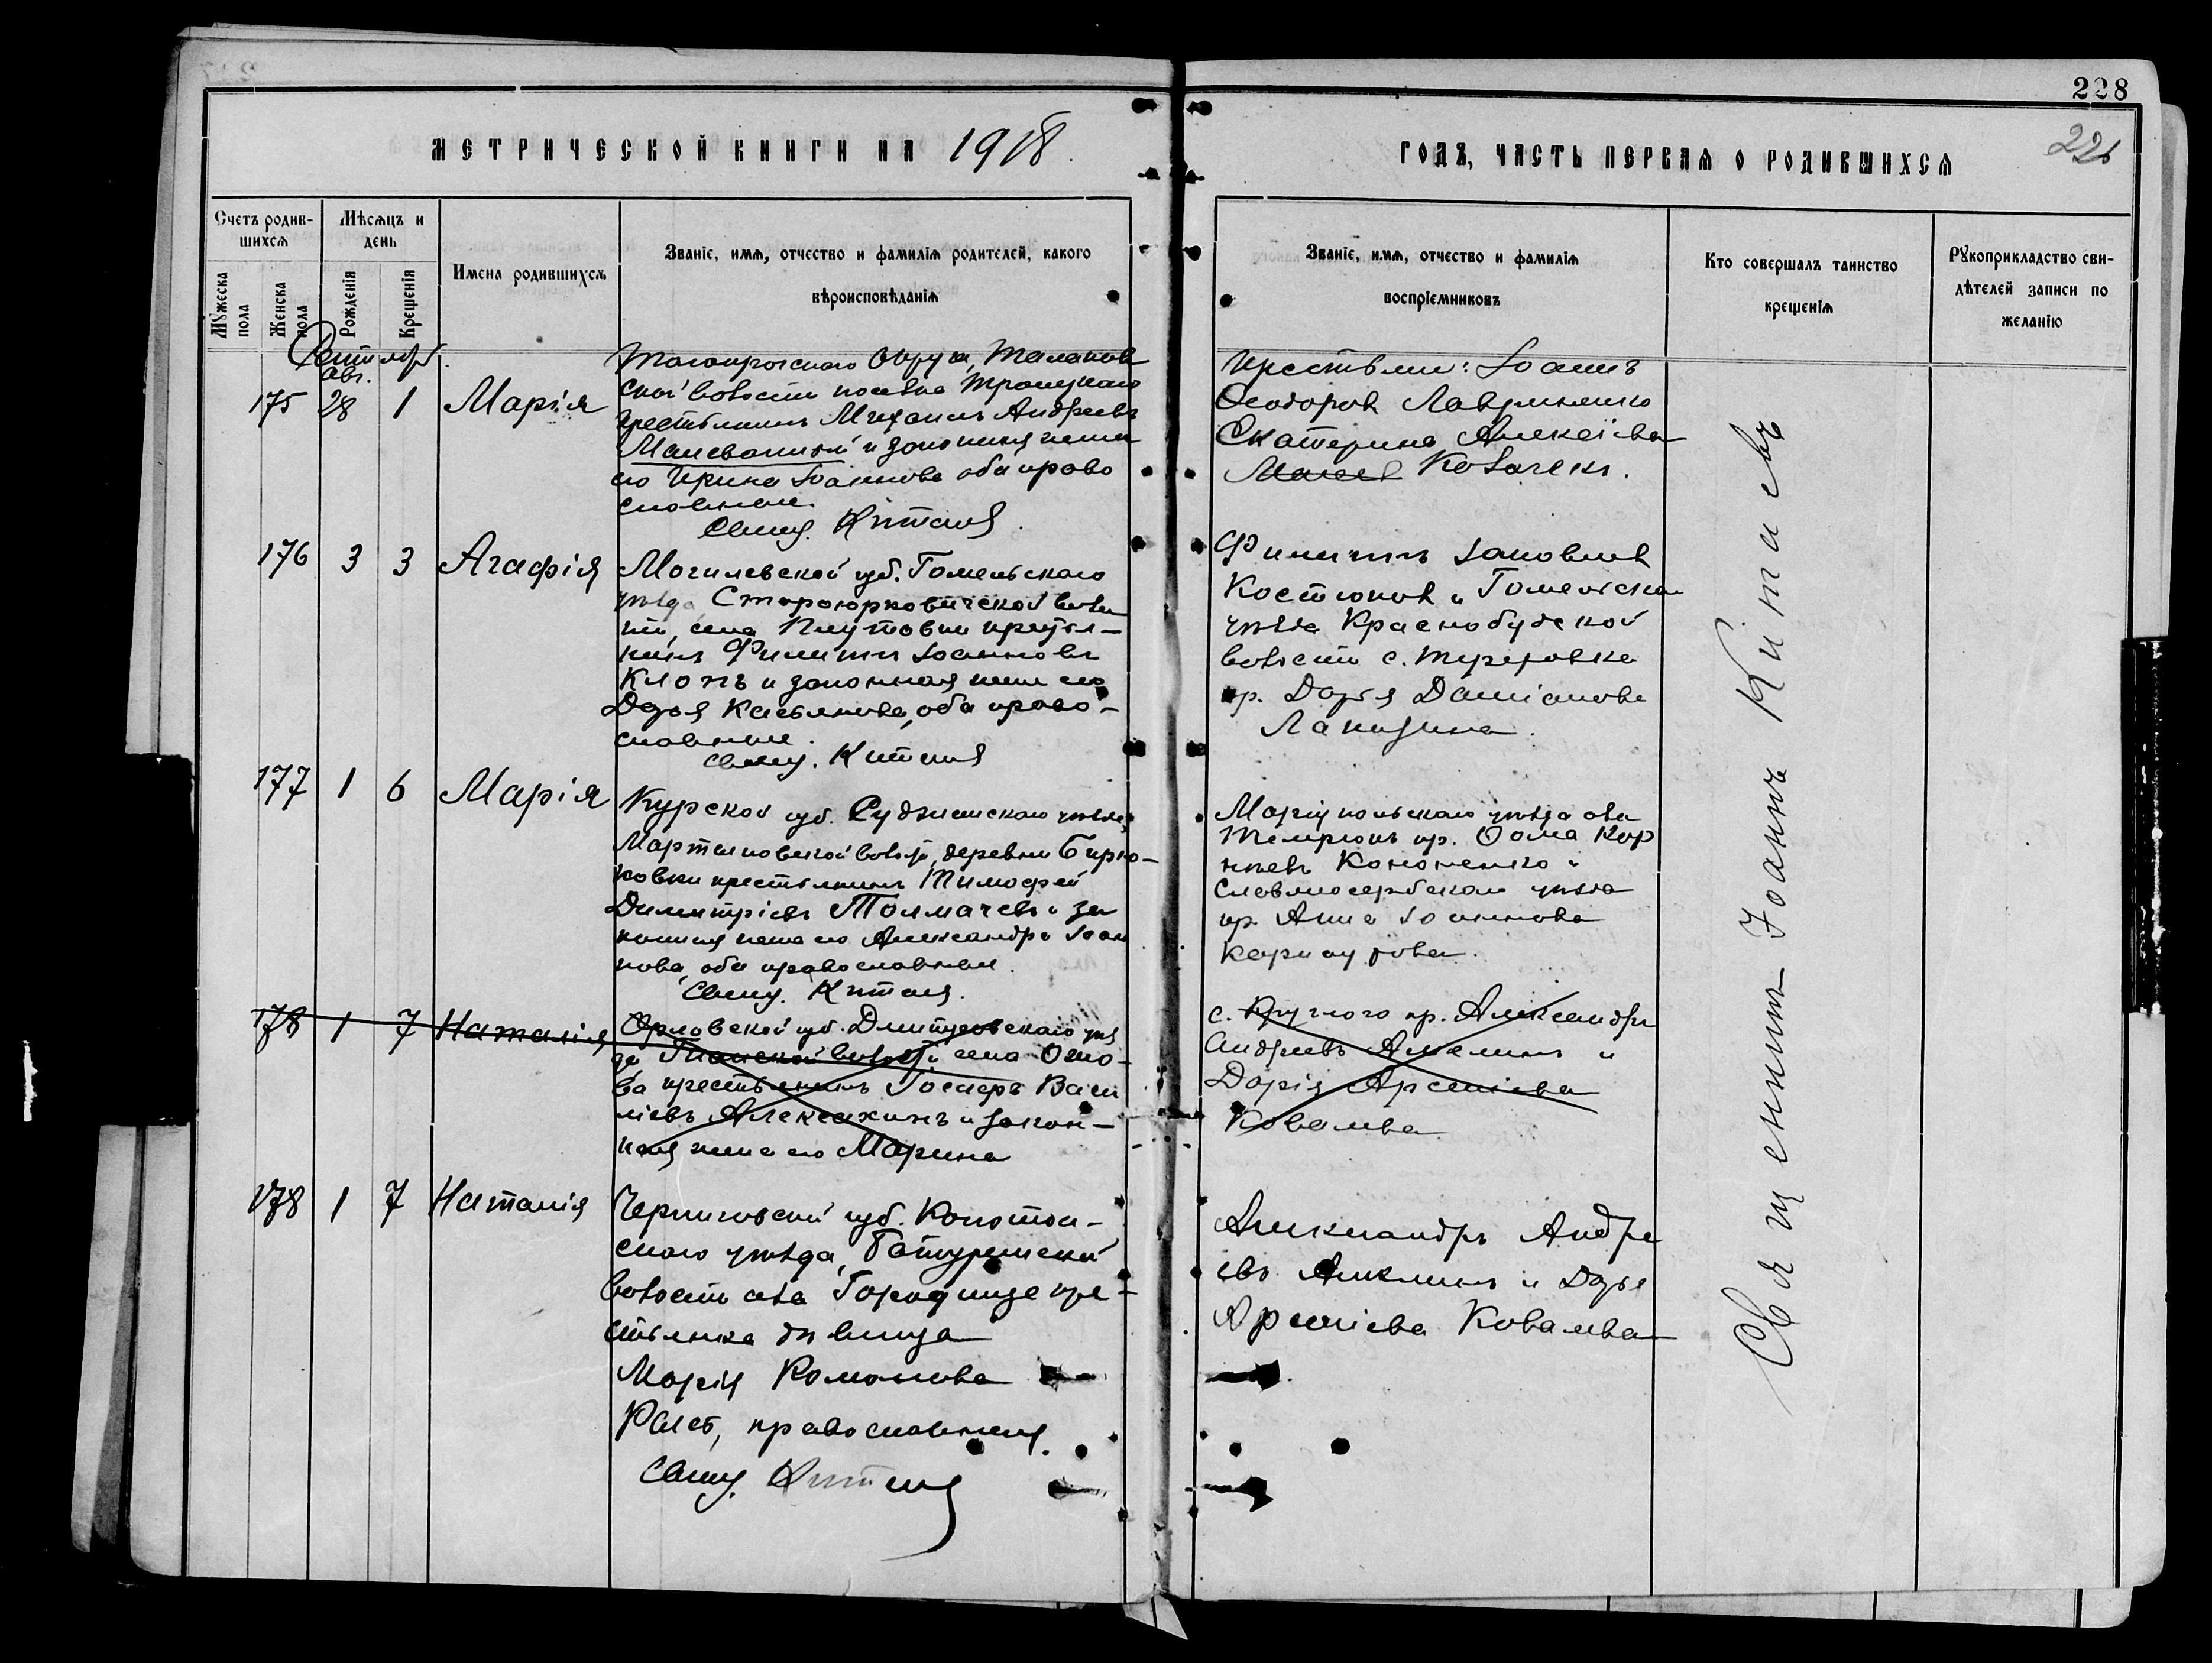 228
226
МЕТРИЧЕСКОЙ КНИГИ НА 1918.
ГОДЪ, ЧАСТЬ ПЕРВАЯ О РОДИВШИХСЯ
Счетъ родив-
шихся
Мужеска пола
Женска пола
Мѣсяцъ и
день
Рожденія
Крещенія
Имена родившихся
Званіе, имя, отчество и фамилія родителей, какого
вѣроисповѣданія
Званіе, имя, отчество и фамилія
воспріемниковъ
Кто совершалъ таинство
крещенія
Рукоприкладство сви-
дѣтелей записи по
желанію
Сентябр.
Авг.
175 28 1 Марія
Таганрогскаго округа,
волости поселка Троицкаго
крестьянинъ Михаилъ Андреевъ
и законная жена
его Ирина Іоаннова оба право
славные.
Свящ. Китаев
Крестьяне: Іоаннъ
Ѳеодоровъ
Екатерина Алексіева
176 3 3 Агафія
Могилевской губ. Гомельскаго
уѣзда Староюрковичской волос
ти, села крестья-
нинъ Филиппъ Іоанновъ
и законная жена его
Дарья Касьянова, оба право-
славные.
Свящ. Китаев
Филиппъ Іаковлевъ
Костюковъ и Гомельскаго
уѣзда Краснобудской
волости с.
кр. Дарья Даміанова
177 1 6 Марія
Курской губ. Суджанскаго уѣзда,
Мартыновской волости, деревни Бирю-
ковки крестьянинъ Тимофей
Димитріевъ Толмачевъ и за
конная жена его Александра Іоан
нова, оба православные.
Свящ. Китаев.
Маріупольскаго уѣзда села
Темрюкъ кр. Ѳома Кор
нѣевъ Кононенко и
Славяносербскаго уѣзда
кр. Анна Іоаннова
178 1 7 Наталія
Орловской губ. Дмитровскаго уѣз
да волости села
крестьянинъ Василь
ліевъ Алексахинъ и закон-
ная жена его Марина
с. Круглого кр. Александръ
Андреевъ Амелинъ и
Дарія Арсеніева
Ковалева
178 1 7 Наталія
Черниговской губ. Конотоп-
скаго уѣзда, Батуринской
волости села Городище кре-
стьянка дѣвица
Марія Романова
православная.
Свящ. Китаев
Александръ Андре
евъ Амелинъ и Дарья
Арсеніева Ковалева
Священникъ Іоаннъ Китаевъ